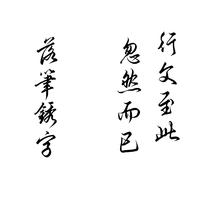 行文至此
忽然而已
落筆銹字